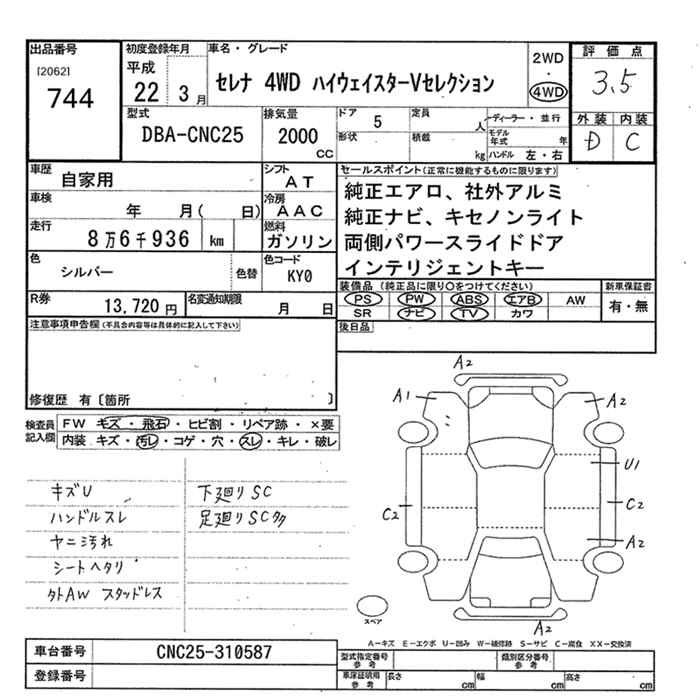 出品番号
[2062]
744
初度登録年月
平成
22 3月
車名・グレード
セレナ 4WD ハイウェイスターVセレクション
2WD
・
4WD
評価点
3.5
外装 内装
D C
型式
DBA-CNC25
排気量
2000
cc
ドア 5
形状
定員
人
積載
kg
ディーラー・並行
モデル年式 年
ハンドル 左・右
車歴
自家用
シフト
AT
車検
年 月( 日)
冷房
AAC
走行
8万6千936 km
燃料
ガソリン
色
シルバー
色替
色コード
KY0
R券
13,720円
名変通知期限
月 日
セールスポイント(正常に機能するものに限ります)
純正エアロ、社外アルミ
純正ナビ、キセノンライト
両側パワースライドドア
インテリジェントキー
装備品(純正品に限り○をつけてください)
PS PW ABS エアB AW
SR ナビ TV カワ
新車保証書
有・無
後日品
注意事項申告欄(不具合内容等は具体的に記入して下さい)
修復歴 有〔箇所 〕
検査員記入欄
FW キズ・飛石・ヒビ割・リペア跡・×要
内装 キズ・汚レ・コゲ・穴・スレ・キレ・破レ
キズU
ハンドルスレ
ヤニ汚れ
シートヘタリ
タトAW スタッドレス
下廻りSC
足廻りSC多
A2
A1
A2
U1
C2
C2
A2
A2
スペア
A-キズ E-エクボ U-凹み W-補修跡 S-サビ C-腐食 XX-交換済
車台番号
CNC25-310587
登録番号
型式指定番号
参考
類別区分番号
参考
車庫証明用
参考
長さ cm
幅 cm
高さ cm